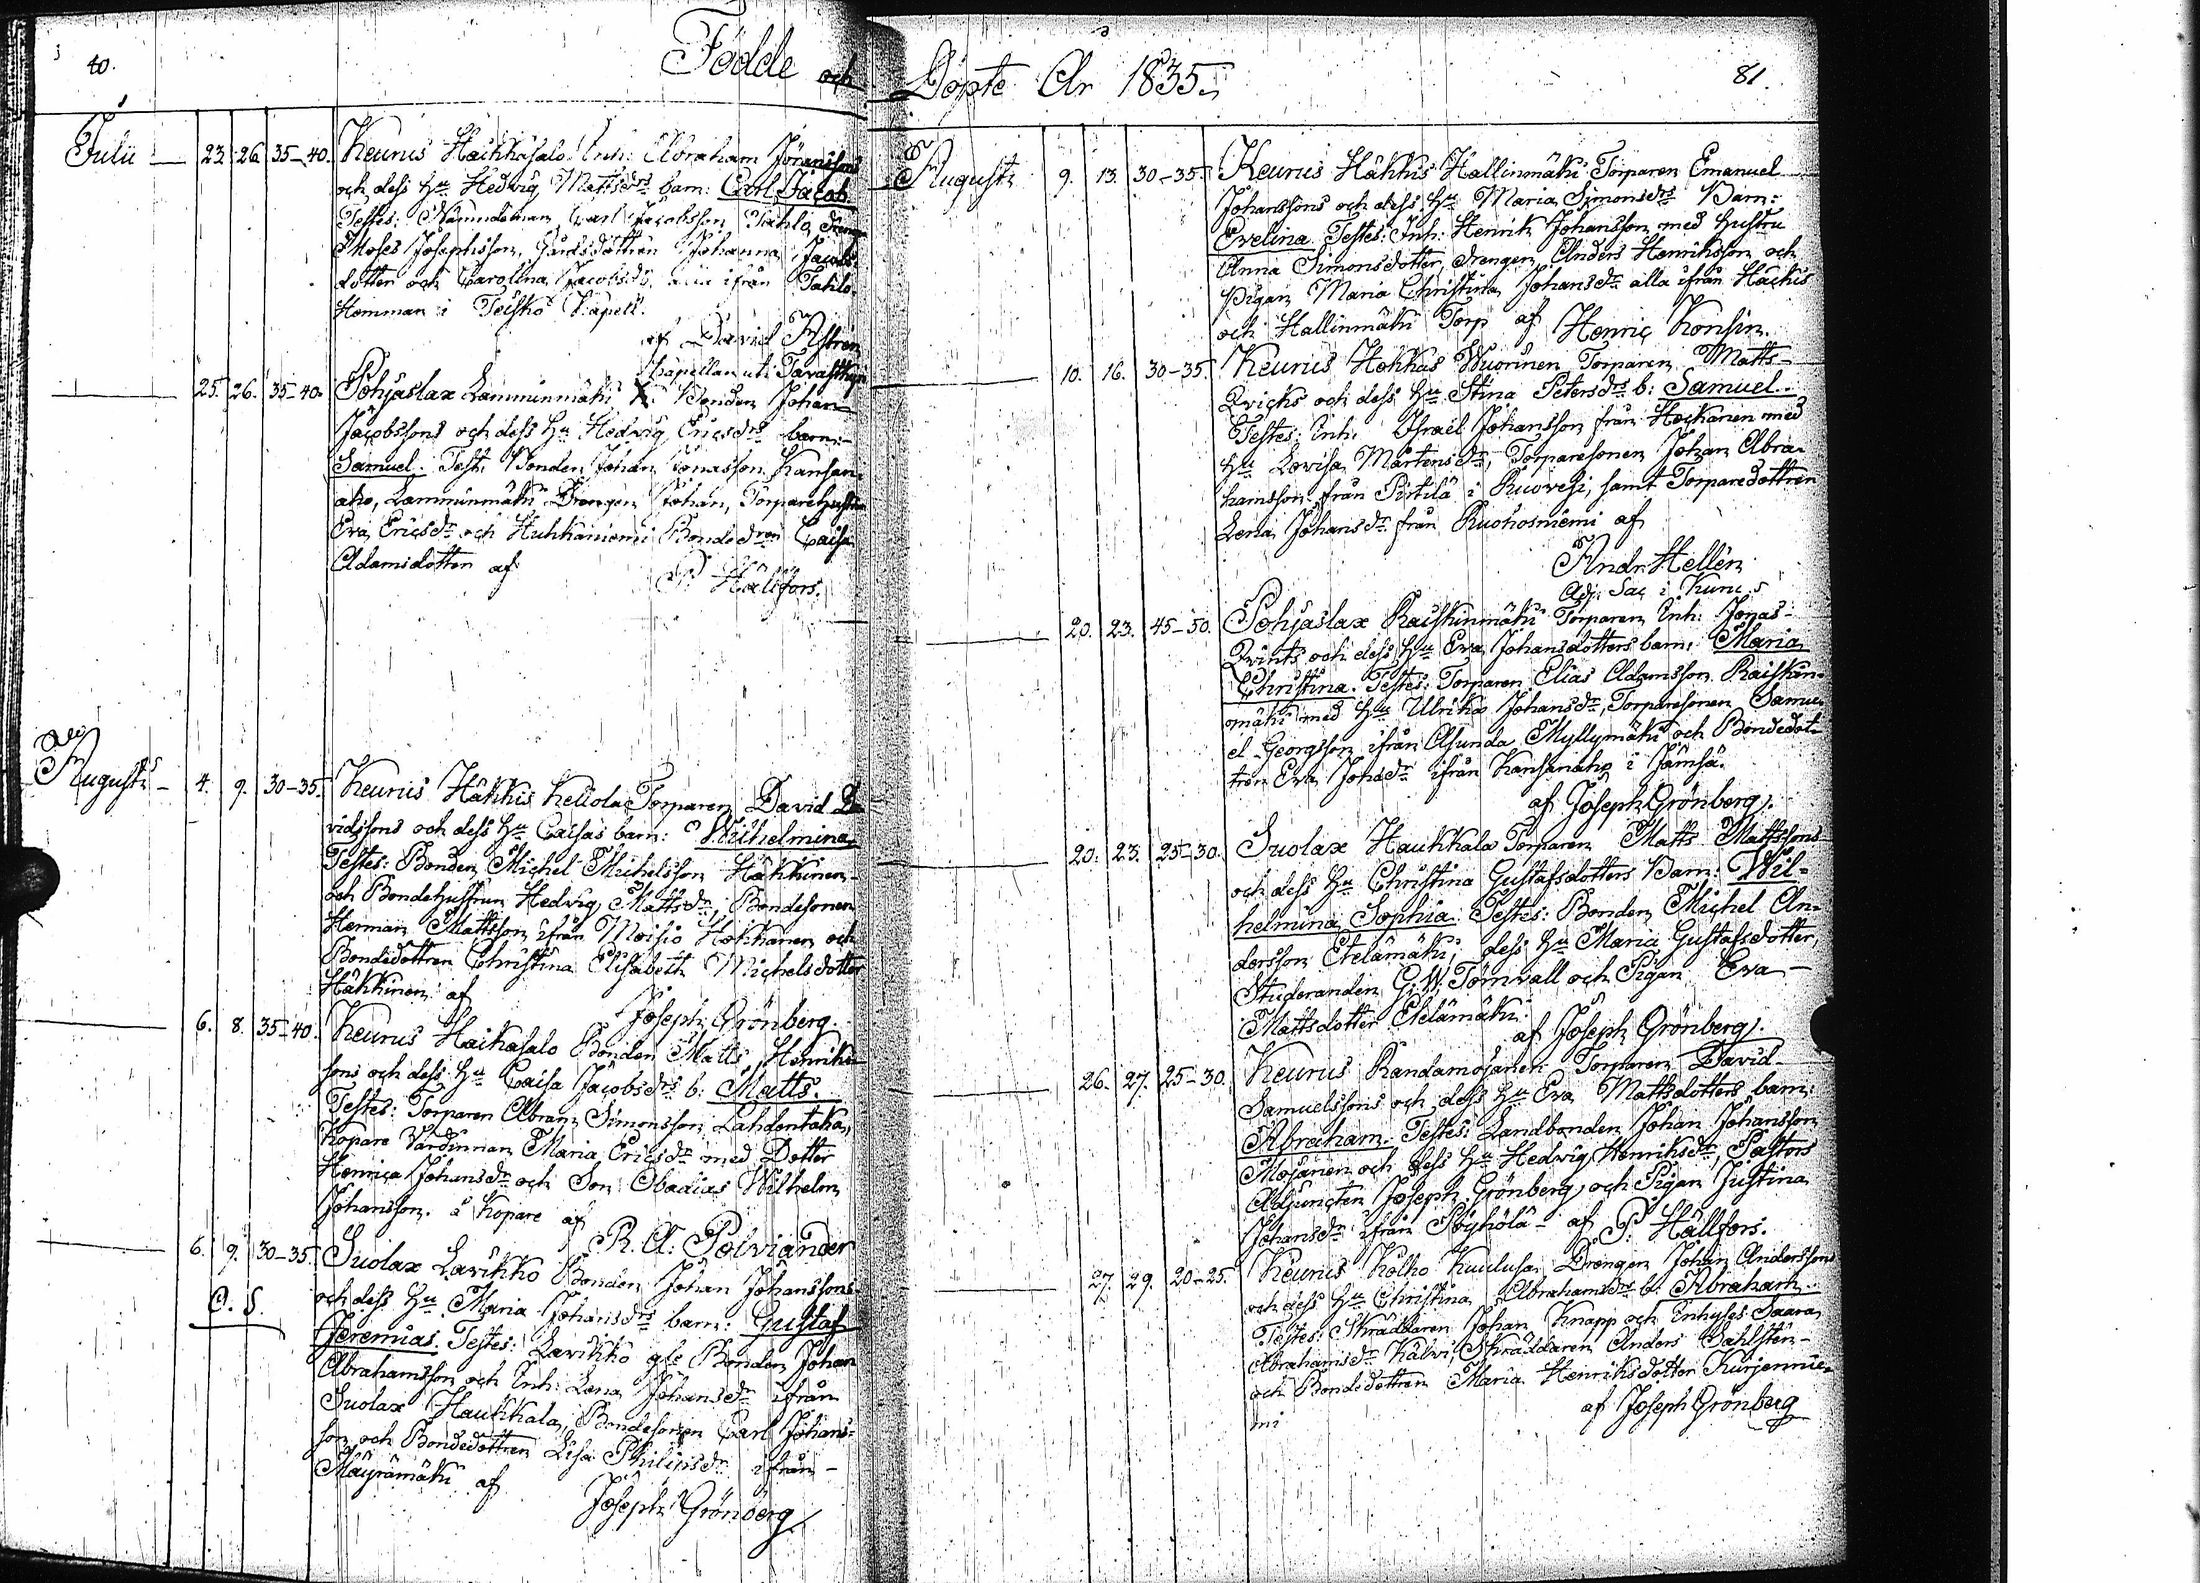 Födde och
Julii 23. 26. 35-40. Keurus Haikkasalo Inh: Abraham Jöranssons
och dess Hu Hedvig Mattsdrs barn: Carl Jacob.
Testes: Nämndeman Carl Jacobsson Tahlo, Drengen
Moses Josephsson, Gårdsdottren Johanna Jacobs
dotter och Carolina Jacobsdr. ifrån Tahlo
Hemman i Teisko Capell.
af David Aström
Capellan uti
25. 26. 35-40. Pohjaslax Lamminmäki Bonden Johan
Jacobssons och dess Hu Hedvig Ericsdrs barn:
Samuel. Test: Bonden Johan Jonasson Kansan-
aho, Lamminmäki Drengen Johan, Torparehustrun
Eva Ericsdr och Huhkaniemi Bondedren Caisa
Adamsdotter af
P. Hällfors.
Augusti 4. 9. 30-35. Keurus Häkkis Torparen David Da
vidssons och dess Hu Caisas barn: Wilhelmina
Testes: Bonden Michel Michelsson Häkkinen
och Bondehustrun Hedvig Mattsdr, Bondesonen
Herman Mattsson ifrån Moisio Hokkanen och
Bondedottren Christina Elisabeth Michelsdotter
Häkkinen: af
Joseph Grönberg.
6. 8. 35-40. Keurus Haikasalo Bonden Matts Henriks
sons och dess Hu Caisa Jacobsdrs b: Matts.
Testes: Torparen Abram Simonsson Lahdentaka,
Kopare Värdinnan Maria Ericsdr med Dotter
Henrica Johansdr och Son Obadias Wilhelm
Johansson. å Kopare af
R. A: Polviander
6. 9. 30-35. Suolax Lavikko Bonden Johan Johanssons
O. S.
och dess Hu Maria Johansdrs barn: Gustaf
Jeremias. Testes: Lavikko gle Bonden Johan
Abrahamsson och Inh: Lena Johansdr ifrån
Suolax Haukkala, Bondesonen Carl Johans-
son och Bondedottren Lisa Philipsdr ifrån
Mäyrämäki af
Joseph Grönberg
Döpte År 1835.
81.
Augusti 9. 13. 30-35. Keurus Häkkis Hallinmäki Torparen Emanuel
Johanssons och dess Hu Maria Simonsdrs Barn:
Evelina. Testes: Inh: Henrik Johansson med Hustru
Anna Simonsdotter, Drengen Anders Henriksson och
Pigan Maria Christina Johansdr alla ifrån Häckis
och Hallinmäki Torp af Henric Konsin.
10. 16. 30-35. Keurus Hokkas Wuorinen Torparen Matts
Qvicks och dess Hu Stina Petersdrs b: Samuel.
Testes: Inh. Israel Johansson från Hockanen med
Hu Lovisa Mårtensdr, Torparesonen Johan Abra-
hamsson från Pirtilä i Ruovesi, samt Torparedottren
Lena Johansdr från Ruohosniemi af
Andr. Hellén
Adj: Sac i Kuru
20. 23. 45-50. Pohjaslax Raiskinmäki Torparen Inh: Jonas
Qvints och dess Hu Eva Johansdotters barn: Maria
Christina. Testes: Torparen Elias Adamsson Raiskin-
mäki med Hu Ulrika Johansdr, Torparesonen Samu-
el Georgsson ifrån Asunda Myllymäki och Bondedot-
tren Eva Johsdr ifrån Kansanaho i Jämsä.
af Joseph Grönberg.
20. 23. 25-30. Suolax Haukkala Torparen Matts Mattssons
och dess Hu Christina Gustafsdotters Barn: Wil-
helmina Sophia. Testes: Bonden Michel An-
dersson Etelämäki, dess Hu Maria Gustafsdotter,
Studeranden G. W. Törnvall och Pigan Eva
Mattsdotter Etelämäki.
af Joseph Grönberg.
26. 27. 25-30. Keurus Randamojanen Torparen David
Samuelssons och dess Hu Eva Mattsdotters barn:
Abraham. Testes: Landbonden Johan Johansson
Mojanen och dess Hu Hedvig Henriksdr, Pastors
Adjuncten Joseph Grönberg, och Pigan Justina
Johansdr ifrån Pöyhölä af P. Hällfors.
27. 29. 20-25. Keurus Kolho Drengen Johan Anderssons
och dess Hu Christina Abrahamsdrs b: Abraham.
Testes: Skräddaren Johan Knapp och Inhyses Saara
Abrahamsdr Kalvi, Skräddaren Anders Dahlstén
och Bondedottren Maria Henriksdotter Kurjennie-
mi
af Joseph Grönberg